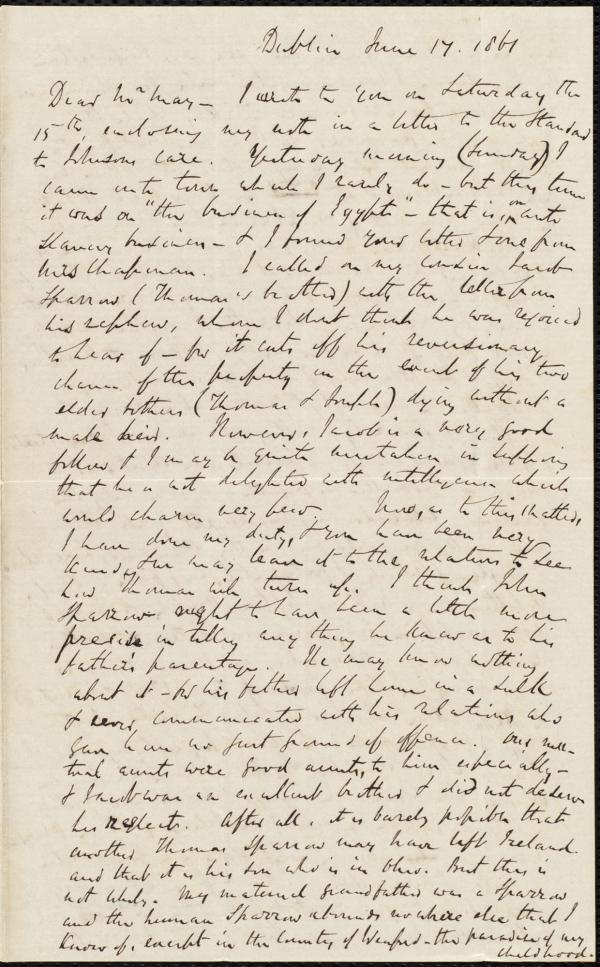 Dublin June 17. 1861
Dear Mr May - I wrote to you on Saturday the
15th, enclosing my note in a letter to the Standard
to Johnsons care. Yesterday morning (Sunday) I
came into town which I rarely do - but this time
it was on "the business of Egypt" - that is, on anti
slavery business - & I found your letter & one from
Mrs Chapman. I called on my cousin Jacob
Sparrow (Thomas's brother) with the letter from
his nephew, whom I dont think he was rejoiced
to hear of - for it cuts off his reversionary
chance of the property in the event of his two
elder brothers (Thomas & Joseph) dying without a
male heir. However, Jacob is a very good
fellow & I may be quite mistaken in supposing
that he is not delighted with intelligence which
would charm very few. Now, as to this matter,
I have done my duty, & you have been very
kind, & we may leave it to the relations to see
how Thomas will turn up. I think John
Sparrow ought to have been a little more
precise in telling any thing he knows as to his
father's parentage. He may know nothing
about it - for his father left home in a sulk
& never communicated with his relations who
gave him no just ground of offence. Our mu-
tual aunts were good aunts, to him especially -
& Jacob was an excellent brother & did not deserve
his neglect. After all, it is barely possible that
another Thomas Sparrow may have left Ireland
and that it is his son who is in Ohio. But this is
not likely. My maternal grandfather was a Sparrow
and the human Sparrow abounds no where else that I
know of, except in the County of Wexford - the paradise of my
childhood.